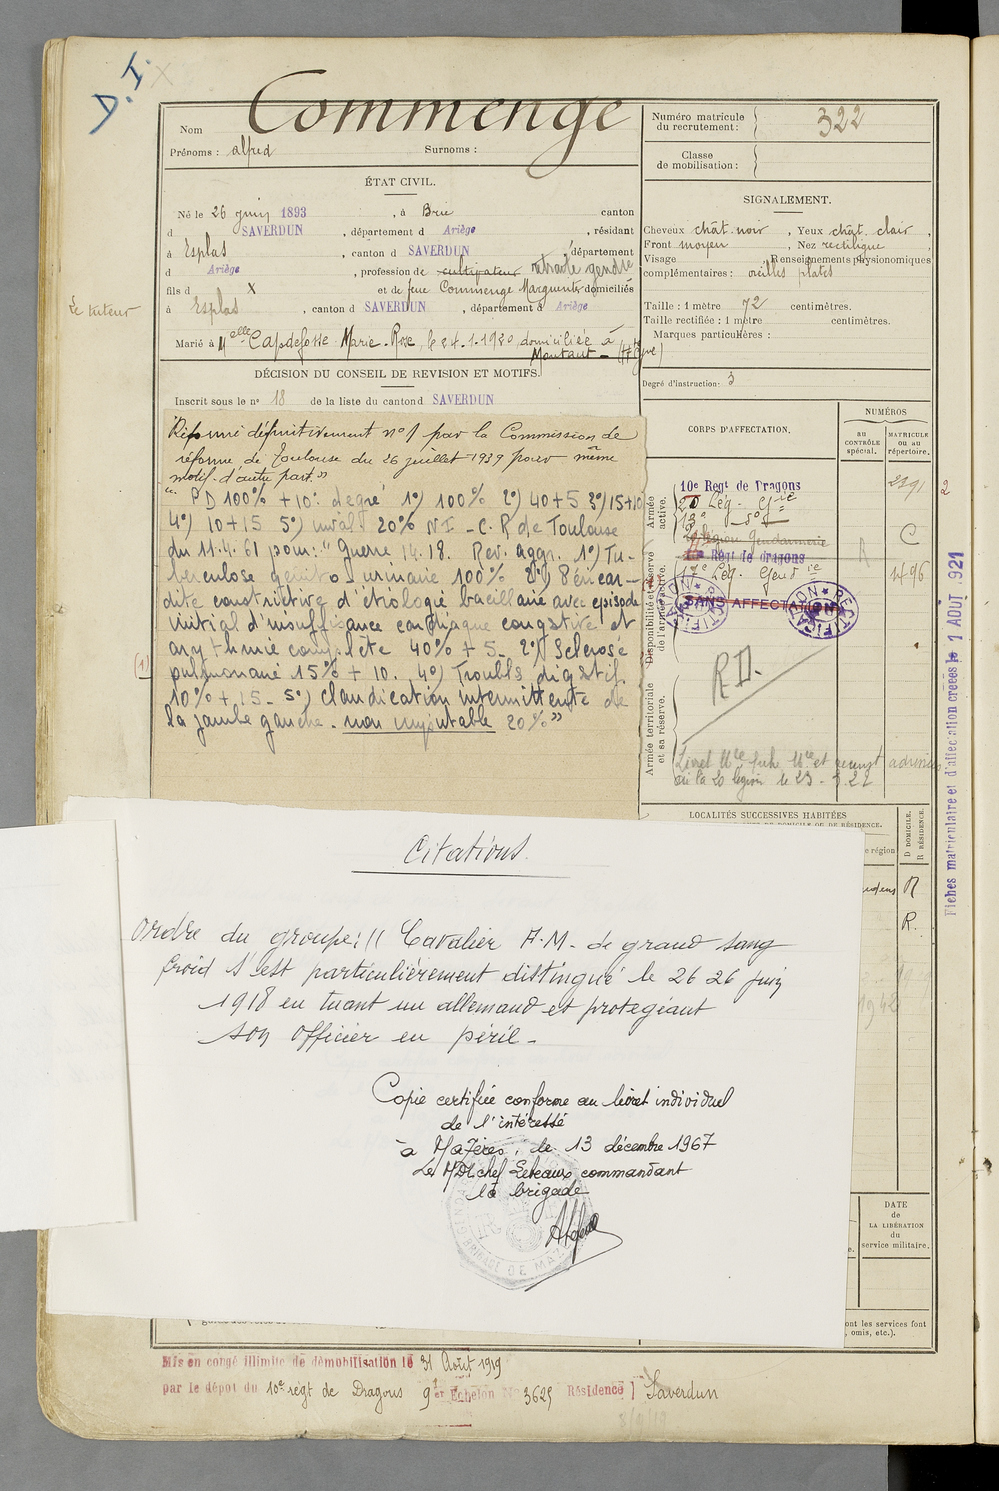 D.I.
Nom Commenge
Prénoms : alfred Surnoms :
Numéro matricule
du recrutement : 322
Classe
de mobilisation :
ÉTAT CIVIL.
Né le 26 juin 1893, à Brie canton
d SAVERDUN, département d Ariège, résidant
à Esplas, canton d SAVERDUN département
d Ariège, profession de cultivateur retraité gendrie
fils d X et de feue Commenge Marguerite domiciliés
à Esplas, canton d SAVERDUN, département d Ariège
Le tuteur
Marié à Melle Capdefosse Marie-Rose, le 24.1.1920, domiciliée à
Montaut -
SIGNALEMENT.
Cheveux chât. noir, Yeux chât. clair,
Front moyen, Nez rectiligne
Visage, Renseignements physionomiques
complémentaires : oreilles plates
Taille : 1 mètre 72 centimètres.
Taille rectifiée : 1 mètre centimètres.
Marques particulières :
Degré d'instruction : 3
DÉCISION DU CONSEIL DE REVISION ET MOTIFS.
Inscrit sous le no 18 de la liste du canton d SAVERDUN
Réformé définitivement no 1 par la Commission de
réforme de Toulouse du 26 juillet 1939 pour même
motif d'autre part"
" PD 100% + 10: degré 1o) 100% 2o) 40+5 3o) 15+10
4o) 10+15 5o) inval 20% N I - C. R de Toulouse
du 11.4.61 pour: "Guerre 14.18. Rev. aggr. 1o) Tu-
berculose génito-urinaire 100% 2o) Péricar-
dite constrictive d'étiologie bacillaire avec episode
initial d'insuffisance cardiaque congestive et
arythmie complète 40% + 5 - 2o) Sclérose
pulmonaire 15% + 10. 4o) Troubles digestif.
10% + 15 - 5o) Claudication intermittente de
la jambe gauche - non imputable 20%"
(1)
CORPS D'AFFECTATION.
NUMÉROS
au
CONTRÔLE
spécial.
MATRICULE
ou au
répertoire.
Armée
active.
10e Regt de Dragons
20 Lég. Gie
13e do
Légion Gendarmerie
Regt de dragons
17e Lég. Gendie
SANS AFFECTATION
RECTIFICATION
RECTIFICATION
2
C
R
1496
Disponibilité et réserve
de l'armée active.
Armée territoriale
et sa réserve.
R.D.
Livret Mle fiche Mle et recenst adressés
à la 20 légion le 23-3.22
Fiches matriculaire et d'affectation créées le 1 AOUT 1921
LOCALITÉS SUCCESSIVES HABITÉES
D DOMICILE.
R RÉSIDENCE.
région
R
R.
1942
Citations.
Ordre du groupe: (( Cavalier A.M. de grand sang
froid s'est particulièrement distingué le 26 26 juin
1918 en tuant un allemand et protegeant
son officier en péril -
Copie certifiée conforme au livret individuel
de l'intéressé
à Mazères, le 13 décembre 1967
Le MDL chef Leveaux commandant
la brigade
BRIGADE DE MAZ
DATE
de
LA LIBÉRATION
du
service militaire.
ont les services font
, omis, etc.).
Mis en congé illimité de démobilisation le 31 Août 1919
par le dépôt du 10e régt de Dragons 9e Echelon No 3625 Résidence ] Saverdun
8/9/19